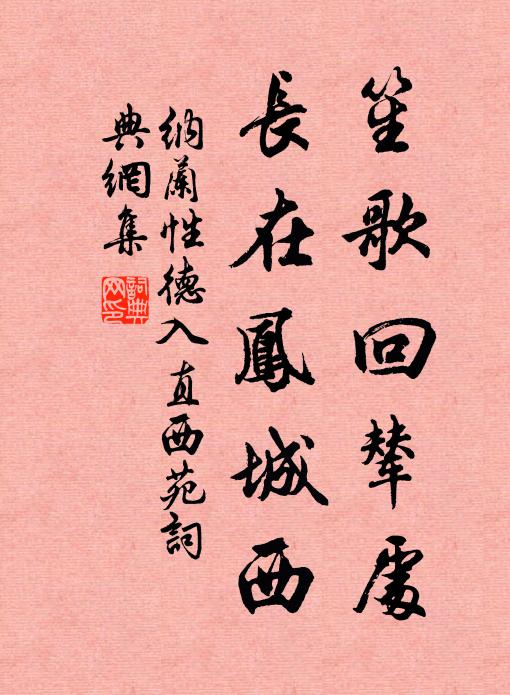 笙歌回輦處
長在鳳城西
納蘭性德入直西苑詞
典網集
詞典網印